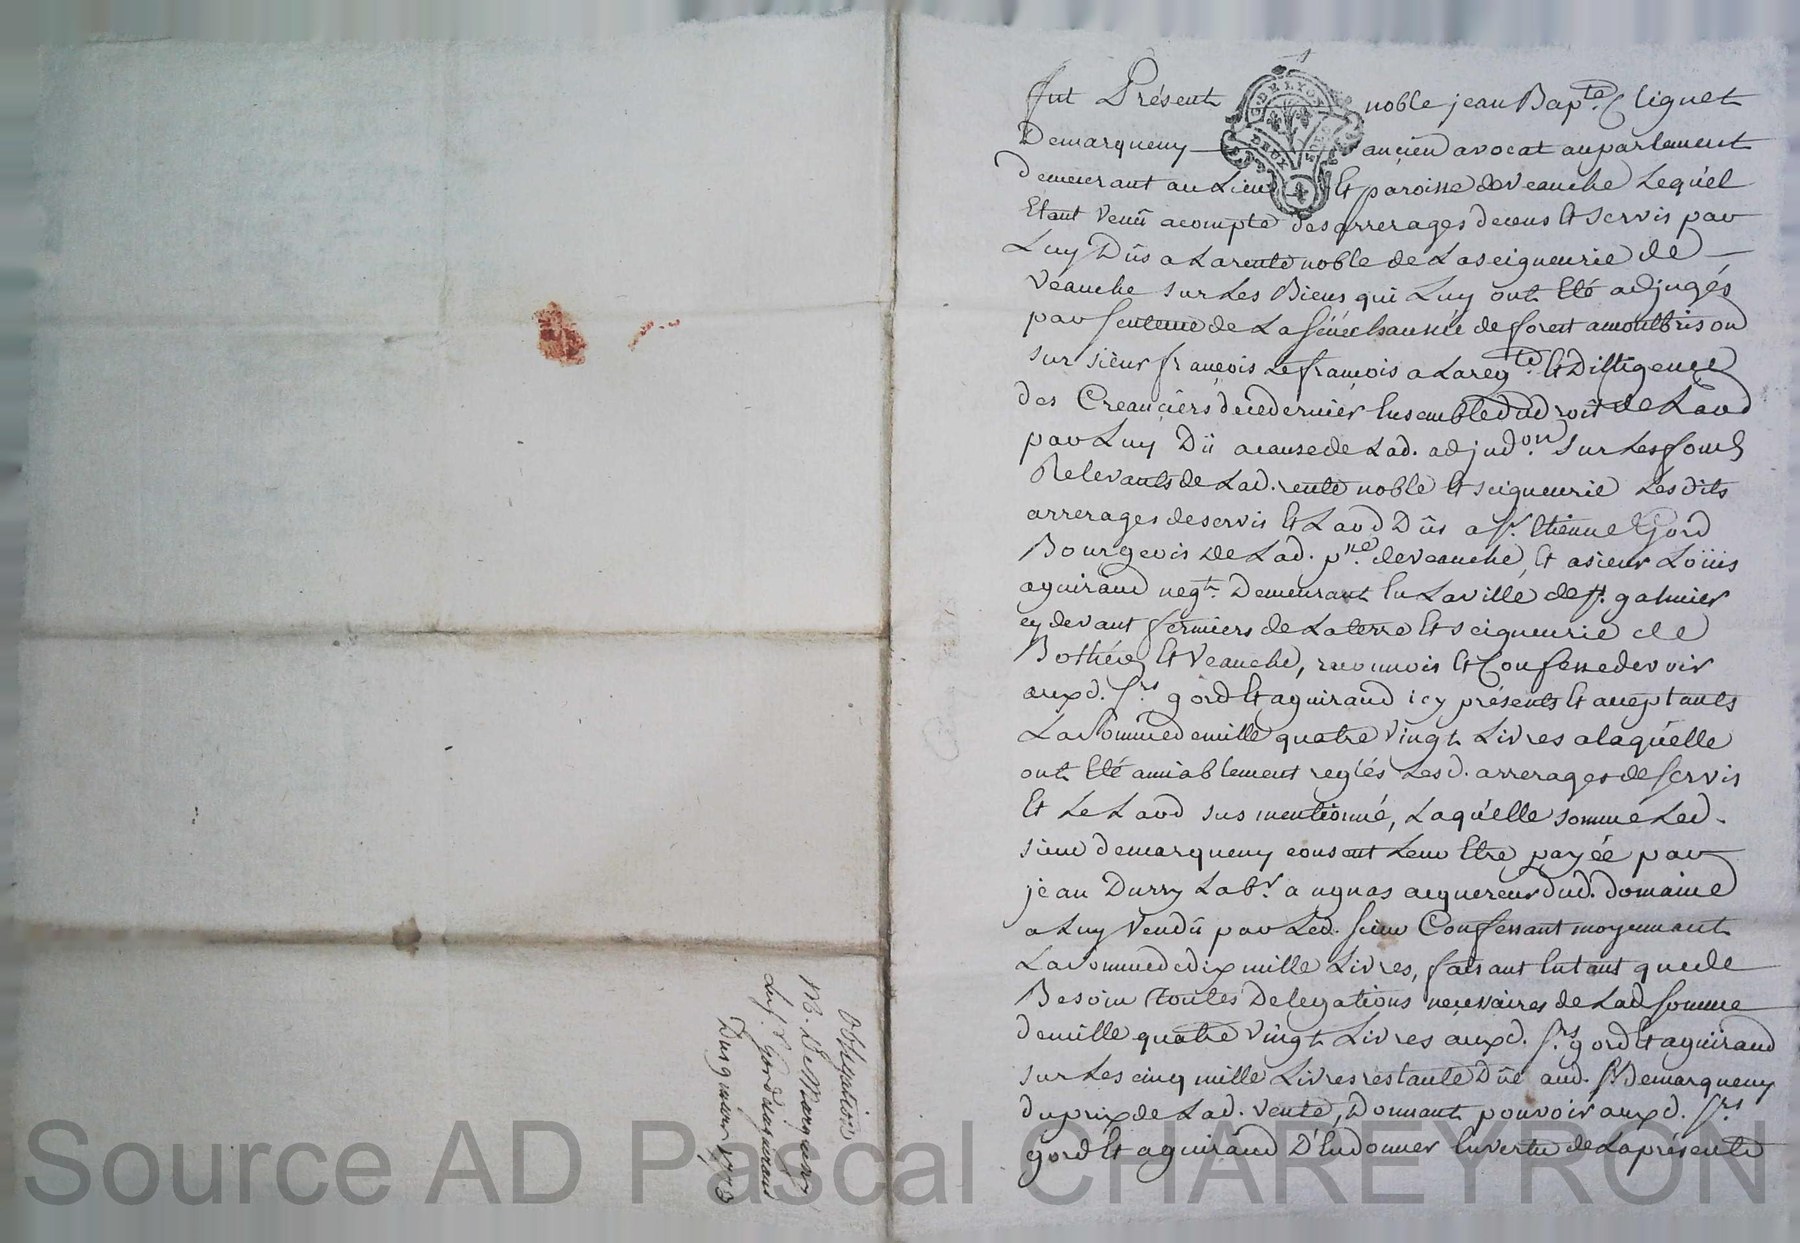 fut Présent noble jean Bapte. Clignet
Demarqueny ancien avocat au parlament
demeurant au Lieu Et paroisse deveauche Lequ'el
Etant venü acompte des arrerages decens Et servis par
Luy Dûs a La rente noble de La seigneurie de
veauche sur Les Biens qui Luy ont Eté adjugés
par sentence de La sénéchaussée de forest a montbrison
sur sieur françois Lefrançois a La reqte. Et Diltigence
des Creanciers decedernier Ensemble du droit de Laod
par Luy Dû a cause de Lad. adjudon. sur Les fonds
Relevants de Lad. rente noble Et seigneurie Les dits
arrerages de servis Et Laod Dûs a sr. Etienne Gord
Bourgeois de Lad. pnse. de veauche, Et a sieur Loüis
aguiraud negt. Demeurant En La ville de st. galmier
cy devant fermiers de La terre Et seigneurie de
Bothéon Et veauche, reconnois Et Confesse devoir
auxd. srs. gord Et aguiraud icy présents Et acceptants
La somme de mille quatre vingt Livres a laqu'elle
ont Eté amiablement reglés Lesd. arrerages de servis
Et Le Laod sus mentionné, Laqu'elle somme Led.
sieur demarqueny consent Leur Etre payéé par
jean Durry Labr. a ugnas acquereur dud. domaine
a Luy vendû par Led. sieur Confessant moyennant
La somme de dix mille Livres, faisant En tant que de
Besoin toutes Delegations necessaires de Lad. somme
de mille quatre vingt Livres auxd. srs. gord Et aguiraud
sur Les cinq mille Livres restante Dûe aud. sr. demarqueny
du prix de Lad. vente, Donnant pouvoir auxd. srs.
gord Et aguiraud D'En donner En vertu de La présente
Obligation
Mr. De Marqueny
Gord & aguiraud
1773
G. DE LYON
DEUX
4
Source AD Pascal CHAREYRON